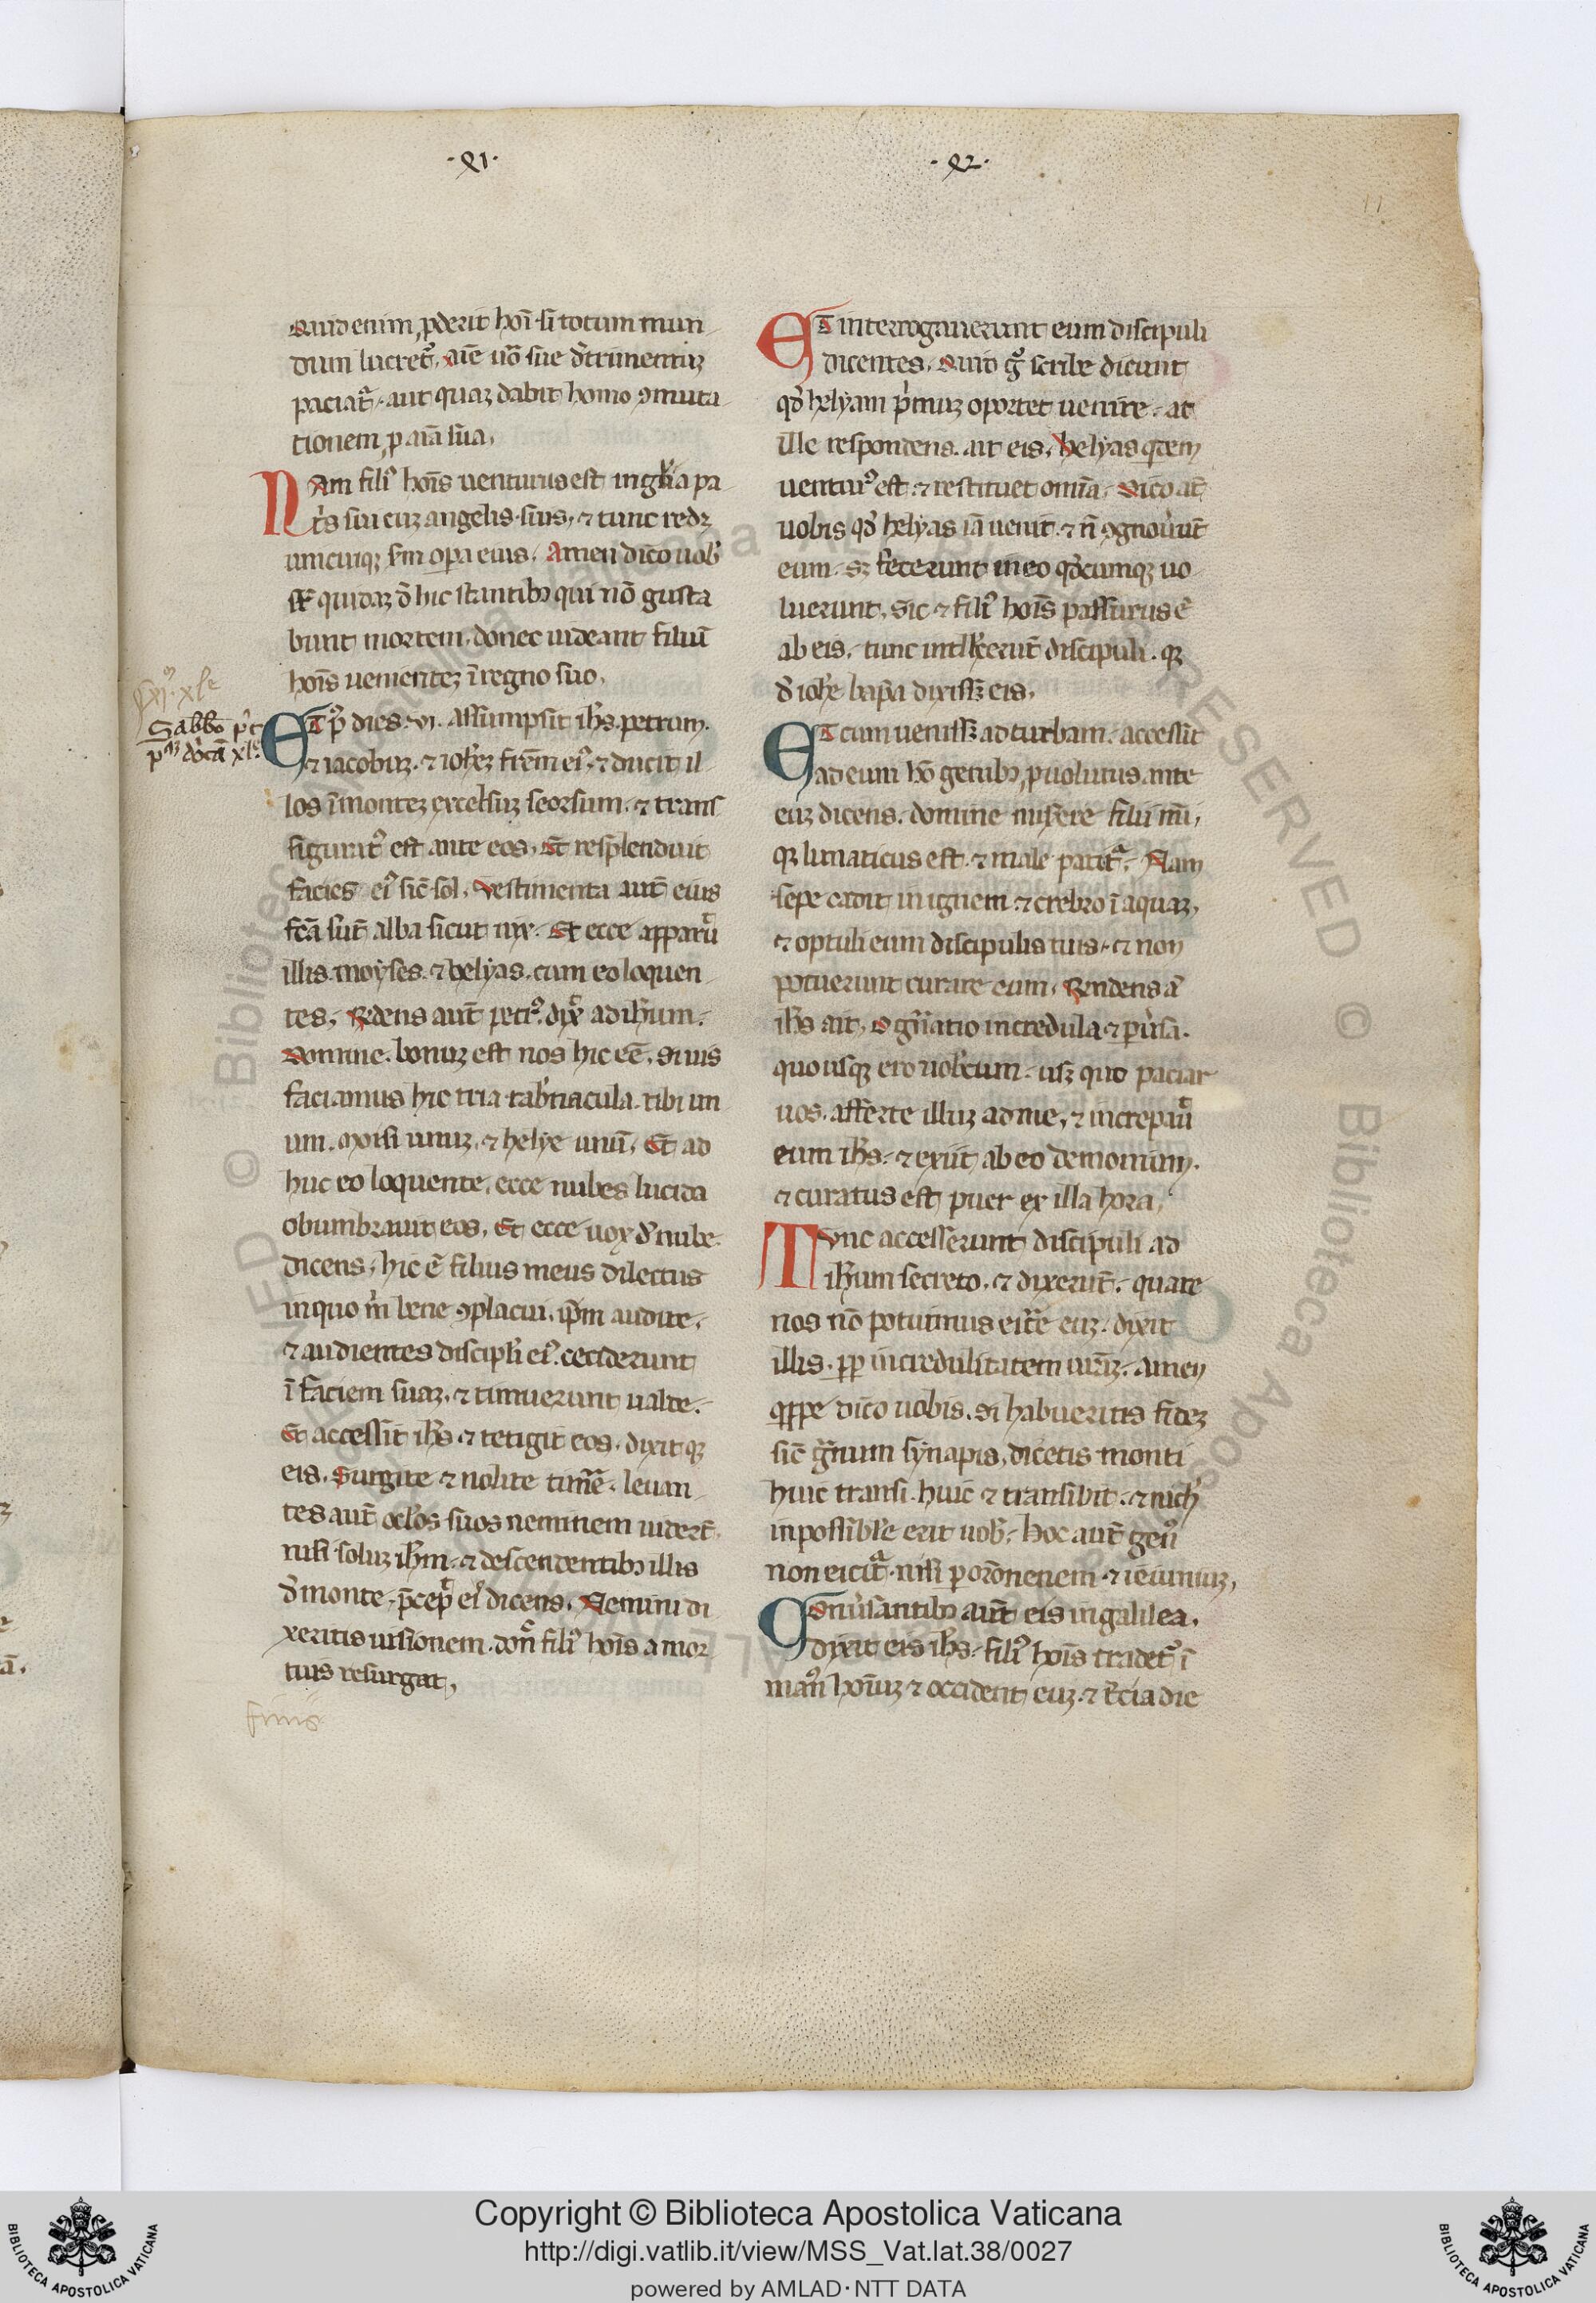 ·Q1·
·Q2·
11
Quid enim ꝓderit hoĩ si totum mun
dum lucret᷒, aĩe uo͛ sue det͛rimentuꝫ
paciat᷑. aut quaꝫ dabit homo ꝯmuta
tionem ꝓ aĩa sua,
NAm fili᷒ hoĩs uenturus est in gl'ia pa
t͛s sui cuꝫ angelis suis, ⁊ tunc redꝫ
unicuiqꝫ s̃m opa eius. Amen dico uob'
sт̃ quidaꝫ d̓ hic stantibꝫ qui nõ gusta
bunt mortem. donec uideant filiũ
hoĩs uenientez ĩ regno suo,
Sabb̃o p͛t
ET p᷒ dies .vi. assumpsit ih̃s petrum.
⁊ iacobuꝫ. ⁊ ioh̃eꝫ frẽm ei᷒. ⁊ ducit il
los ĩ monteꝫ excelsuꝫ seorsum. ⁊ trans
figurat᷒ est ante eos. Et resplenduit
facies ei᷒ sic̃ sol, Vestimenta aut̃ eius
fc̃a sut̃ alba sicut nix. Et ecce apparũ
illis. moyses. ⁊ helyas. cum eo loquen
tes. Rñdens aut̃ petr᷒. dix͛ ad ih̃um.
Domine. bonuꝫ est nos hic eẽ. Si uis
faciamus hic tria tab'nacula. tibi un
um. moisi unuꝫ. ⁊ helye unũ, Et ad
huc eo loquente, ecce nubes lucida
obumbrauit eos, Et ecce uox d̓ nube
dicens. hic ẽ filius meus dilectus
in quo m̓ bene ꝯplacui. ip̃m audite.
⁊ audientes discipl'i ei᷒. ceciderunt
ĩ faciem suaꝫ. ⁊ timuerunt ualde.
Et accessit ih̃s ⁊ tetigit eos. dixitqꝫ
eis. Surgite ⁊ nolite tim̃e. leuan
tes aut̃ oc̃los suos neminem uidert̃
nisi soluꝫ ih̃m. ⁊ descendentibꝫ illis
d̓ monte. p̃cep͛ eis dicens. Nemini di
xeritis uisionem. don͛ fili᷒ hoĩs a mor
tuis resurgat,
finis
ET interrogauerunt eum discipuli
dicentes. Quid g͛ scribe dicunt
qd̓ helyam p͛muꝫ oportet uenire. at
ille respondens. ait eis. helyas qͥdem
ventur᷒ est. ⁊ restituet omĩa. Dico at̃
uobis qd̓ helyas iã uenit. ⁊ ñ ꝯgnou͛ut̃
eum. sꝫ fecerunt in eo qd̓cumqꝫ uo
luerunt, sic ⁊ fili᷒ hoĩs passurus ẽ
ab eis. tunc intll'xerut̃ discipuli. qꝫ
d̓ ioh̃e bap̃a dixissꝫ eis,
ET cum uenissꝫ ad turbam. accessit
ad eum hõ genibꝫ ꝓuolutus ante
euꝫ dicens. domine misere͛re filii mi͛,
qꝫ lunaticus est. ⁊ male patit᷑. Nam
sepe cadit in ignem ⁊ crebro ĩ aquaꝫ,
⁊ optuli eum discipulis tuis. ⁊ non
potuerunt curare eum. Rñdens a͛
ih̃s ait, O gñ͛atio incredula ⁊ pu͛sa.
quousqꝫ ero uob'cum. usqꝫ quo paciar
uos. afferte illuꝫ ad me, ⁊ increpaũ
eum ih̃s. ⁊ exiit ab eo demonium.
⁊ curatus est puer ex illa hora,
TUnc accesserunt discipuli ad
ih̃um secreto. ⁊ dixerut̃. quare
nos nõ potuimus eic͛e euꝫ. dixit
illis. pp̃ incredulitatem ur̃aꝫ. amen
qͥppe dico uobis. Si habueritis fideꝫ
sic̃ g᷑num synapis, dicetis monti
huic transi huic ⁊ transibit. ⁊ nich'
inpossibl'e erit uob'. hoc aut̃ gen᷒
non eicit᷑. nisi p orõnenem ⁊ ieiuniuꝫ,
COnu͛santibꝫ aut̃ eis in galilea.
dixit eis ih̃s. fili᷒ hoĩs tradet᷒ ĩ
man᷒ hoĩuꝫ ⁊ occident euꝫ. ⁊ t͛cia die
Copyright © Biblioteca Apostolica Vaticana
http://digi.vatlib.it/view/MSS_Vat.lat.38/0027
powered by AMLAD·NTT DATA
BIBLIOTECA APOSTOLICA VATICANA
BIBLIOTECA APOSTOLICA VATICANA